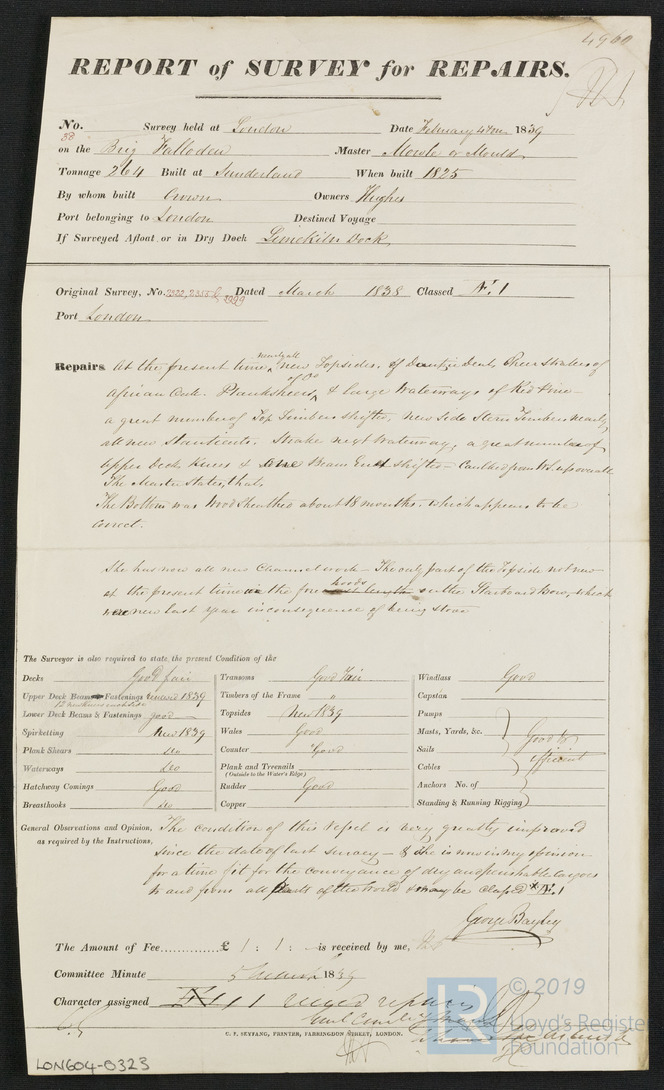 4960
REPORT of SURVEY for REPAIRS.
No. 58 Survey held at London Date February 4th 1839
on the Brig Falloden Master Mowle or Mould
Tonnage 264 Built at Sunderland When built 1825
By whom built Crown Owners Hughes
Port belonging to London Destined Voyage
If Surveyed Afloat or in Dry Dock Limekiln Dock
Original Survey, No. 2322, 2355 & 1999 Dated March 1838 Classed Æ 1
Port London
Repairs. At the present time, nearly all new Topsides. of Do Sheer Strakes of
African Oak. Planksheers of Do & large Waterways of Red Pine
a great number of Top Timbers shifted, new side Stern Timbers nearly
all new Stantients. Strake next Waterway, a great number of
upper Deck Knees & one Beam End shifted - Caulked from WS. up overall
The Master States, that
The Bottom was Wood Sheathed about 18 months. which appears to be
correct.
She has now all new Channel work - The only part of the Topside not new
at the present time is the fore hoods on the Starboard Bow, which
were new last year in consequence of being stove
The Surveyor is also required to state the present Condition of the
Decks Good fair Transoms Good Fair Windlass Good
Upper Deck Beams Fastenings renewed 1839 Timbers of the Frame " Capstan
Lower Deck Beams & Fastenings good Topsides New 1839 Pumps
Spirketting New 1839 Wales Good Masts, Yards, &c. Good &
Plank Shears Do Counter Good Sails efficient
Waterways Do Plank and Treenails (Outside to the Water's Edge) Cables
Hatchway Comings Good Rudder Good Anchors No. of
Breasthooks Do Copper Standing & Running Rigging
General Observations and Opinion, The condition of this Vessel is very greatly improved
as required by the Instructions, since the date of last survey - & She is now in my opinion
for a time fit for the conveyance of dry and perishable cargoes
to and from all Parts of the World & may be classed * Æ 1
George Bayley
The Amount of Fee............. £ 1 : 1 : - is received by me,
Committee Minute 5 March 1839
Character assigned Æ 1
C. F. SEYFANG, PRINTER, FARRINGDON STREET, LONDON.
LON604-0323
LR
© 2019
Lloyd's Register
Foundation